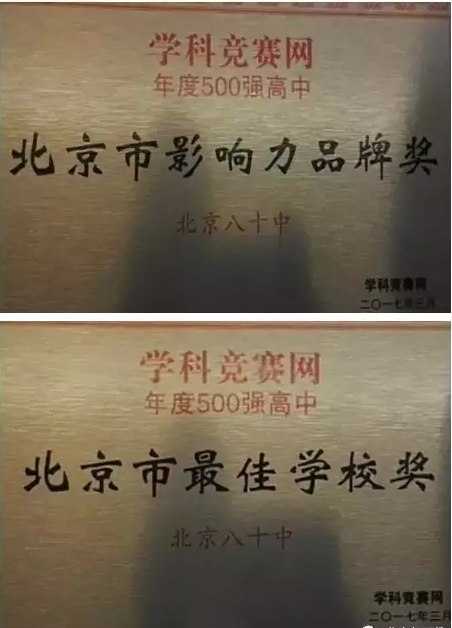 学科竞赛网
年度500强高中
北京市影响力品牌奖
北京八十中
学科竞赛网
二〇一七年三月
学科竞赛网
年度500强高中
北京市最佳学校奖
北京八十中
学科竞赛网
二〇一七年三月